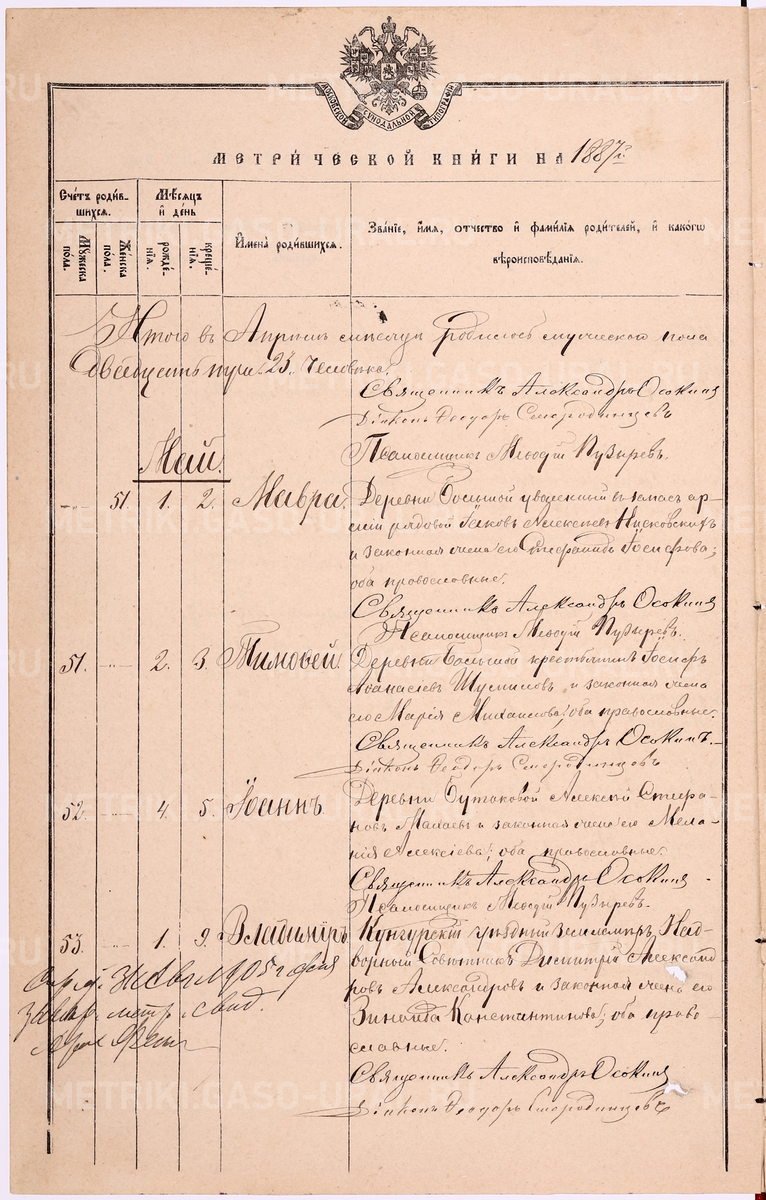 МОСКОВСКОЙ СѴНОДАЛЬНОЙ ТИПОГРАФІИ
МЕТРИ́ЧЕСКОЙ КНИ́ГИ НА 1887 г.
Счетъ роди́в-
шихся.
Мѣсяцъ
и҆ день
И҆мена роди́вшихся.
Зва́нїе, и҆́мя, отчество и҆ фами́лїя роди́телей, и҆ како́гѡ
вѣроисповѣ́данїя.
Мꙋ́жеска
по́ла.
Же́нска
по́ла.
рожде́-
нїя.
креще́-
нїя.
Итого въ Апрѣлѣ мѣсяцѣ родилось мужескаго пола
двадцать три 23 человѣка.
Священникъ Александръ Осокинъ
Діаконъ Ѳеодоръ Смородинцевъ
Псаломщикъ Меѳодій Пузыревъ.
Май.
51. 1. 2. Мавра. Деревни Большой уволенный въ запасъ ар-
міи рядовой Іаковъ Алексѣевъ
и законная жена его Іосифова;
оба православные.
Священникъ Александръ Осокинъ
Псаломщикъ Меѳодій Пузыревъ.
51. 2. 3. Тимоѳей. Деревни Большой крестьянинъ Іосифъ
Аѳанасіевъ Шумиловъ и законная жена
его Марія Михаилова; оба православные.
Священникъ Александръ Осокинъ.
Діаконъ Ѳеодоръ Смородинцевъ
52. 4. 5. Іоаннъ Деревни Бутаковой Алексій Стефа-
новъ и законная жена его Мела-
нія Алексіева; оба православные.
Священникъ Александръ Осокинъ
Псаломщикъ Меѳодій Пузыревъ.
53. 1. 9. Владиміръ Кунгурскій уѣздный землемѣръ, Над-
ворный Совѣтникъ Димитрій Александ-
ровъ Александровъ и законная жена его
Зинаида Константинова; оба право-
славные.
Священникъ Александръ Осокинъ
Діаконъ Ѳеодоръ Смородинцевъ
1905 г.
метр. свид.
METRIKI.GASO-URAL.RU